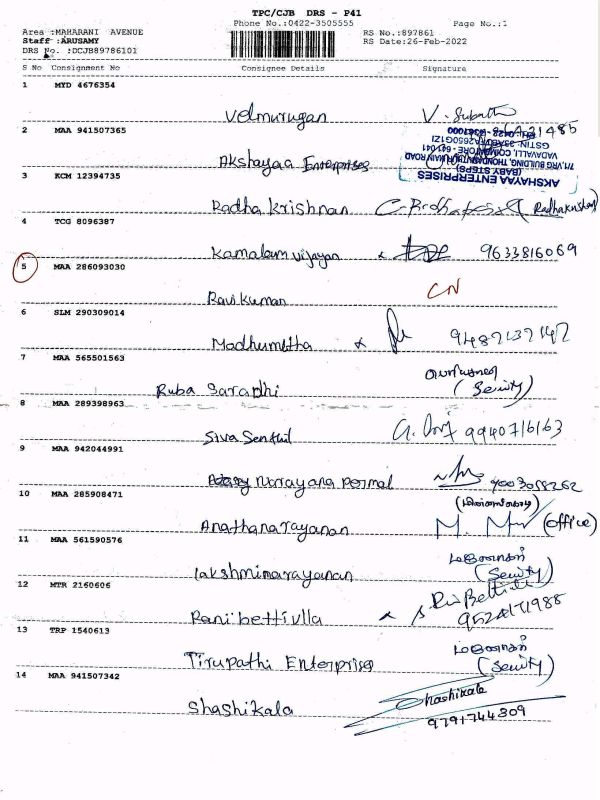 TPC/CJB DRS - P41
Phone No.:0422-3505555 Page No.:1
Area :MAHARANI AVENUE RS No.:897861
Staff :ARUSAMY RS Date:26-Feb-2022
DRS No. :DCJB89786101
S No Consignment No Consignee Details Signature
1 MYD 4676354
Velmurugan V. Subathra
2 MAA 941507365
Akshayaa Enterprises
AKSHAYAA ENTERPRISES
(BABY STEPS)
7/1,VRG BUILDING, THONDAMUTHUR MAIN ROAD
VADAVALLI, COIMBATORE- 641041
3 KCM 12394735
Radha Krishnan (Radhakrishnan)
4 TCG 8096387
Kamalam vijayan x 9633816069
5 MAA 286093030
Ravikumar CN
6 SLM 290309014
Madhumitha x 9487137147
7 MAA 565501563
Ruba Sarathi (Seurity)
8 MAA 289398963
Siva Senthil 9940716163
9 MAA 942044991
Narayana Permal 9003058262
10 MAA 285908471
Anathanarayanan M. (office)
11 MAA 561590576
Lakshminarayanan (Seurity)
12 MTR 2160606
Rani bettiulla x 9524171988
13 TRP 1540613
Tirupathi Enterprises (Seurity)
14 MAA 941507342
Shashikala Shashikala
9791744309